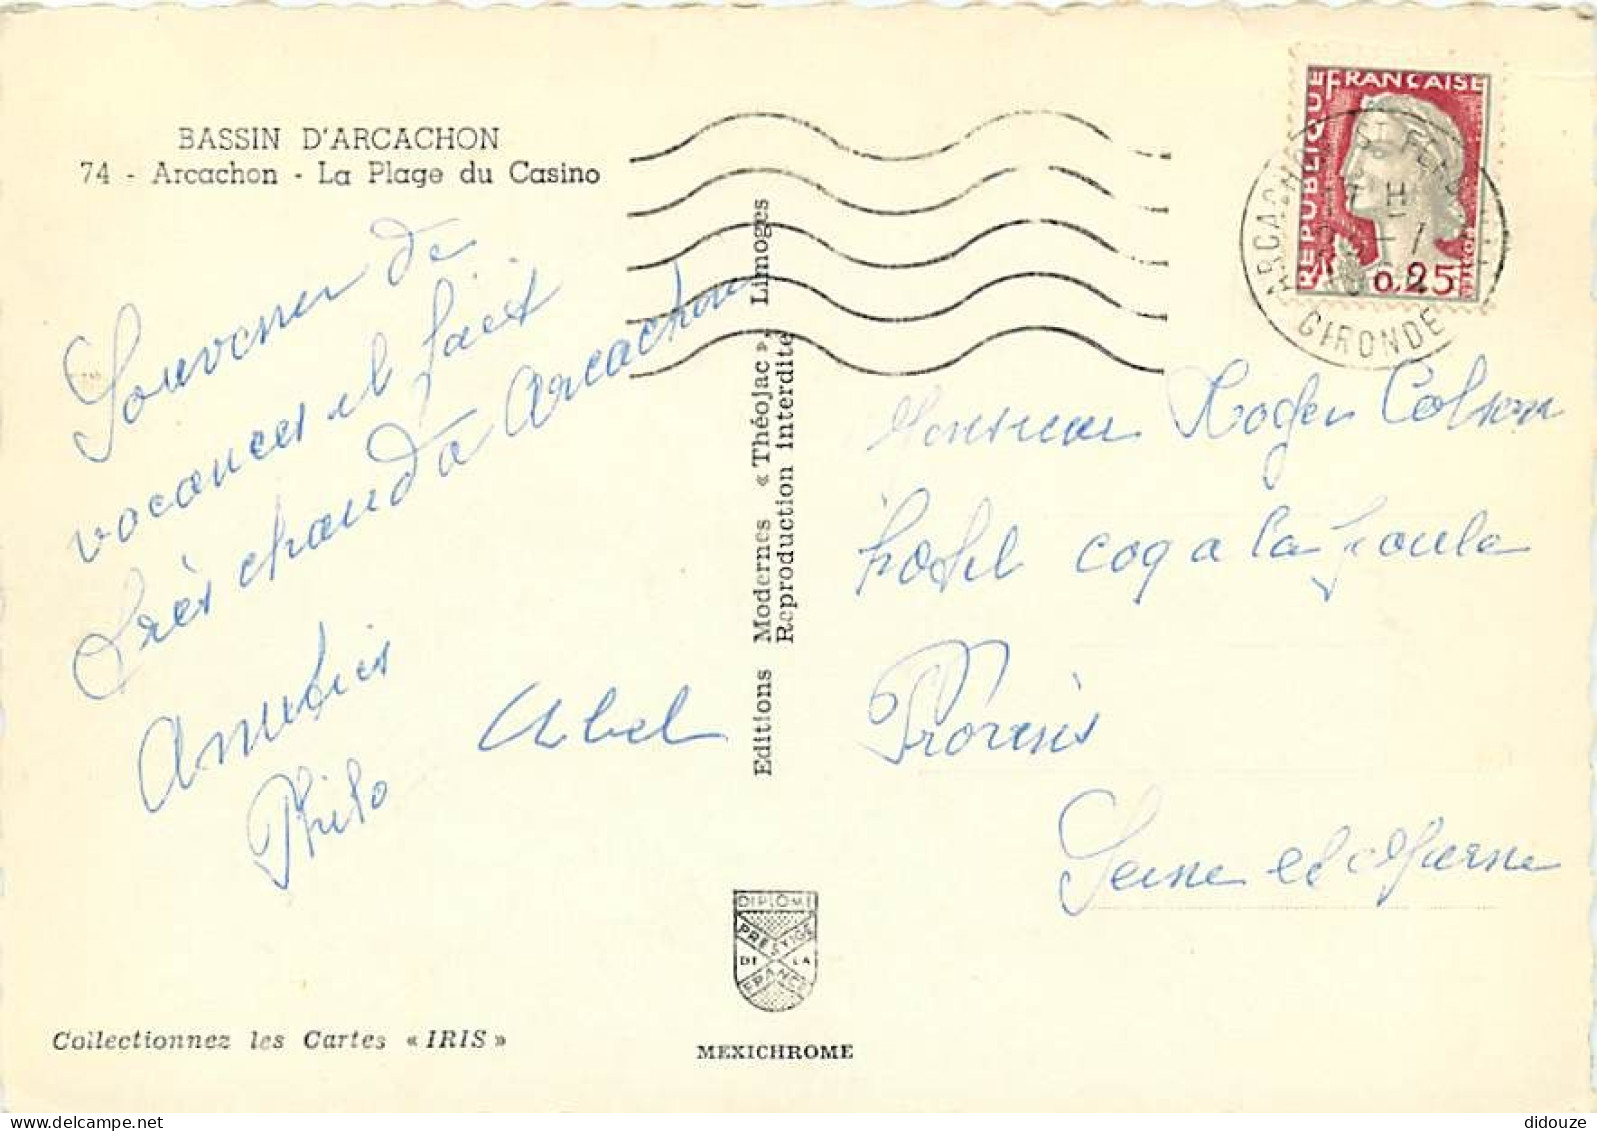 BASSIN D'ARCACHON
74 - Arcachon - La Plage du Casino
Souvenir de
vacances il fait
très chaud à Arcachon
Amitiés
Abel
Philo
Editions Modernes « Théojac », Limoges
Reproduction interdite
REPUBLIQUE FRANÇAISE
0,25
ARCACHON ST FERDINAND
GIRONDE
Monsieur Roger Colson
hotel coq a la Poule
Provins
Seine et Marne
DIPLOME
PRESTIGE
DE LA
FRANCE
Collectionnez les Cartes « IRIS »
MEXICHROME
didouze